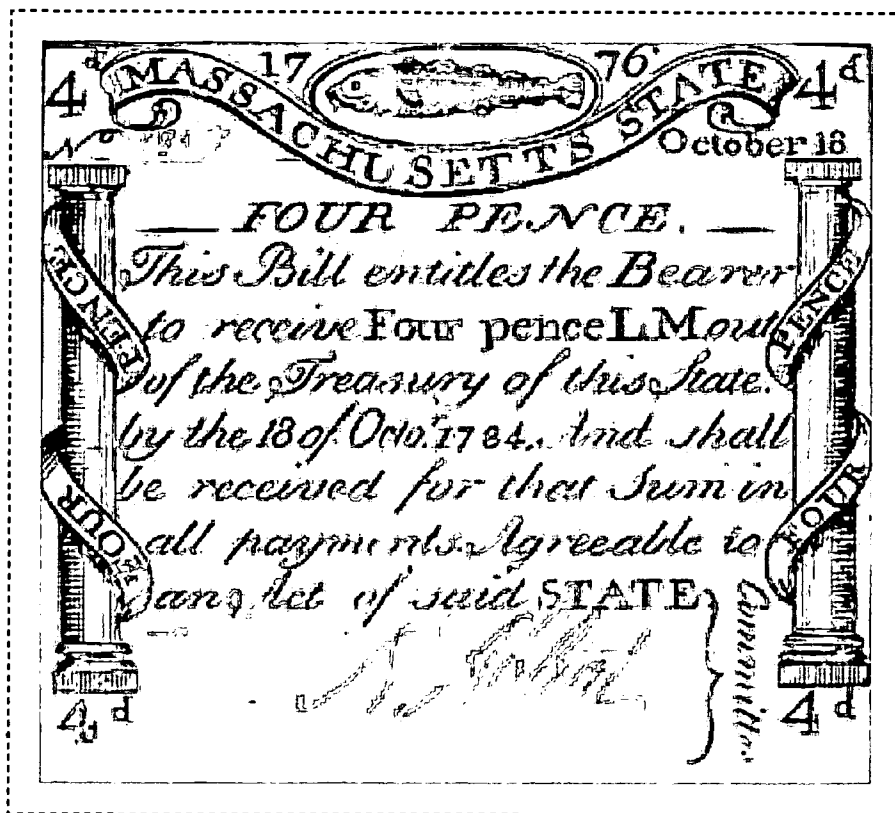 4d 17 76 4d
MASSACHUSETTS STATE
October 18
FOUR PENCE.
This Bill entitles the Bearer
to receive Four pence LM out
of the Treasury of this State.
by the 18 of Octo.r 1784. And shall
be received for that Sum in
all payments Agreeable to
an Act of said STATE
PENCE
FOUR
PENCE
FOUR
Committee
4d 4d